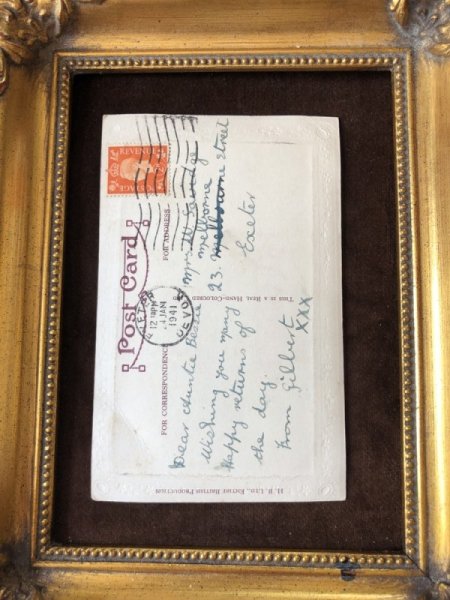 REVENUE
POSTAGE
Post Card
4 JAN
1941
DEVON
FOR CORRESPONDENCE
FOR ADDRESS
Dear Auntie Bessie
Wishing you many
Happy returns of
the day.
From Gilbert
XXX
Mrs. W.
Melborne
23. Melbourne Street
Exeter
THIS IS A REAL HAND-COLOURED
ENTIRE BRITISH PRODUCTION